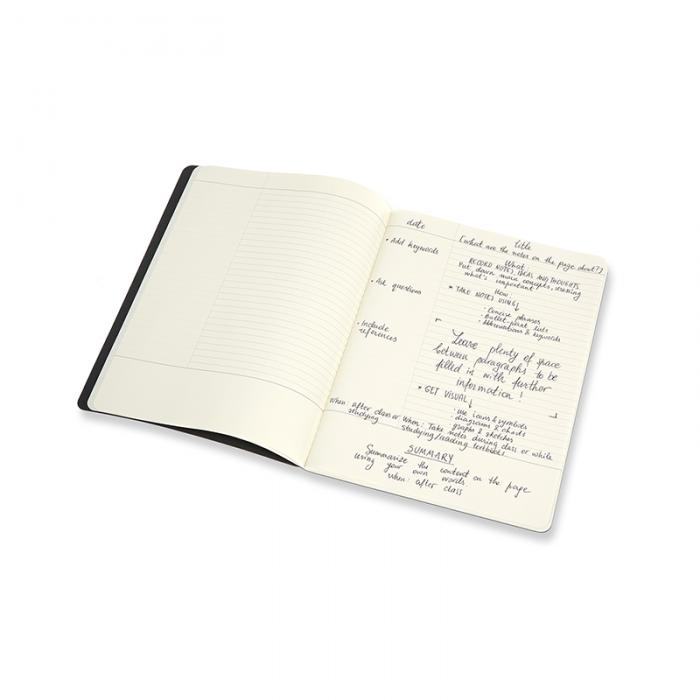 date
title
(what are the notes on the page about?)
• Add keywords
• Ask questions
• Include
references
When: after class or
studying
What:
RECORD NOTES, IDEAS AND THOUGHTS
Put down main concepts, stressing
what's important
How:
* TAKE NOTES USING ↓
· Concise phrases
· Bullet-point lists
· Abbreviations & keywords
Leave plenty of space
between paragraphs to be
filled in with further
information!
* GET VISUAL ↓
· Use icons & symbols
diagrams & charts
graphs & sketches
When: Take notes during class or while
studying/reading textbooks.
SUMMARY
Summarize the content on the page
using your own words.
When: after class